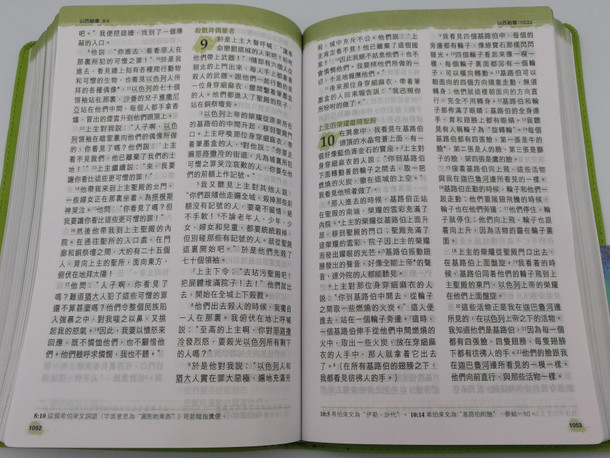 以西結書 8-9
吧。」我便挖牆,找到了一個隱
蔽的入口。
他說:「你進去,看看惡人在
那裏所犯的可憎之罪!」於是我
進去,看見牆上刻有各種爬行動物
和可憎的生物,也看見以色列人所
拜的各種偶像。以色列的七十個
領袖站在那裏,沙番的兒子雅撒尼
亞站在他們中間,每個人都手拿香
爐,冒出的煙雲升到他們頭頂上。
上主對我說:「人子啊,以色
列領袖在暗室裏向他們的偶像做
的,你看見了嗎?他們說:『上主
看不見我們,他已離棄了我們的土
地!』」上主還說:「來,我要
讓你看比這些更可憎的罪!」
他帶我來到上主聖殿的北門,
一些婦女正在那裏坐着,為搭模斯
神哭泣。他問:「你看見了嗎?但
我要讓你看比這些更可憎的罪!」
然後他帶我到上主聖殿的內
院。在通往聖所的入口處,在門
廊和銅祭壇之間,大約有二十五個
人,背向上主的聖所,面向東方,
俯伏在地拜太陽!
他問:「人子啊,你看見了
嗎?難道猶大人犯了這些可憎的罪
還不算甚麼嗎?他們令整個國民族陷
入強暴之中,對我嗤之以鼻,又挑
起我的怒氣。因此,我要以憤怒來
回應。既不憐恤他們,也不顧惜他
們。他們雖呼求憐憫,我也不聽。」
殺戮拜偶像者
9
於是上主大聲呼喊:「讓奉
命懲罰這城的人來吧!給他
們帶上武器!」有六個人從聖殿
朝北的上門出來,每人手上都拿着
殺人的武器。跟他們一起的還有
一位身穿細麻衣、腰間繫着墨盒
的人。他們都進入了聖殿的院子,
站在銅祭壇旁。
以色列上帝的榮耀從原來所在
的基路伯中間升起,移到聖殿門口。
上主呼喚那位身穿細麻衣、帶
着筆墨盒的人,對他說:「你走
遍耶路撒冷的街道,凡為城裏所犯
可憎之罪哭泣哀歎的人,你要在他
們的前額上作記號。」
我又聽見上主對其他人說:
「你們跟隨他走遍全城,殺掉那些前
額沒有記號的人,要毫不留情,絕
不手軟!不論老年人、少年、少
女、婦女和兒童,都要統統殺掉,
但別碰那些有記號的人。就從聖殿
這裏開始吧。」於是他們先殺了
七十個領袖。
上主下令:「去玷污聖殿吧!
把屍體堆滿院子!去!」他們就出
去,開始在全城上下殺戮。
他們出去殺人的時候,我獨自
一人在那裏。我俯伏在地上呼喊
說:「至高的上主啊,你對耶路撒
冷發烈怒,要殺光以色列所有剩下
的人嗎?」
於是他對我說:「以色列人和
猶大人實在罪大惡極。遍地充滿兇
1052
以西結書 10:22
殺,城中充斥不公。他們說:『上
主看不見我們!他已離棄了這個國家!』
因此我也不會憐憫他們,也不會
愛惜他們。我要照他們所作所為的一
切,十足地報應他們。」
後來那位身穿細麻衣、帶着筆
墨盒的人回來報告說:「我已照你
所吩咐的做了。」
上主的榮耀離開聖殿
10
在異象中,我看見在基路伯
頭頂的水晶穹蒼上面,有一
個好像藍色青金石的寶座。上主對
那身穿細麻衣的人說:「你到基路伯
下面轉動着的輪子之間去,取一把
燃燒的炭火,撒在這城的上空。」
我看見他照着做了。
那人進去的時候,基路伯正站
在聖殿的南端,榮耀的雲彩充滿了
內院。上主的榮耀從基路伯上面升
起,移到聖殿的門口;聖殿充滿了
這榮耀的雲彩,院子因上主的榮耀
而發出耀眼的光芒。基路伯振動翅
膀發出的聲音,好像全能上帝的聲
音,連外院的人都能聽見。
上主對那位身穿細麻衣的人
說:「你到基路伯中間去,從輪子
之間取一些燃燒的火炭。」這人便進
去,站在一個輪子旁邊。這時,一
個基路伯伸手從他們中間燃燒的
火中,取出一些火炭,放在穿細麻
衣的人手中。那人就拿着它出去
了。(在所有的基路伯的翅膀之下
我都看見彷彿人的手。)
我看見四個基路伯中,每個的
旁邊都有輪子,像綠寶石那樣閃閃
發光。四個輪子都是同一模樣,
每個輪子裏面都另有一個輪
子,可以橫向轉動。基路伯可以
朝面向的四個方向隨意走動,無須
轉身;他們就這樣朝面向的方向直
行,完全不用轉身。基路伯和輪
子都布滿了眼睛,基路伯的全身連
手、背和翅膀上都有眼睛。我聽
見有人稱輪子為「旋轉輪」。每個
基路伯都有四張面:第一張是牛的
臉,第二張是人的臉,第三張是獅
子的臉,第四張是鷹的臉。
後來基路伯向上飛。這些活物
與我在迦巴魯河邊所看見的一樣。
基路伯走動的時候,輪子和他們一
起走動;他們展翅飛翔的時候,
輪子也在他們旁邊。他們停住,輪
子就停住;他們向上飛,輪子也跟
着向上升,因為活物的靈在輪子裏
面。
上主的榮耀從聖殿門口出去,
在基路伯上面盤旋。我看着的時
候,基路伯同着他們的輪子飛到上
主聖殿的東門,以色列上帝的榮耀
在他們上面盤旋。
這些活物正是我在迦巴魯河邊
所見的,在以色列上帝之下的活物。
我知道他們是基路伯,因為每一個
都有四張臉、四隻翅膀,每隻翅膀
下都有彷彿人的手。他們的臉跟我
在迦巴魯河邊所看見的一模一樣。
他們向前直行,與那些活物一樣。
10:5 希伯來文為「伊勒·沙代」。 10:14 希伯來文為「基路伯的臉」
1053